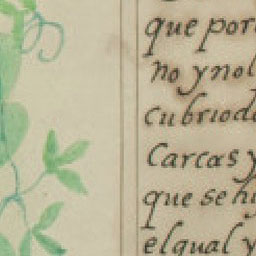 que por
no y nol
cubriod
Carcas y
que se hi
el qual y